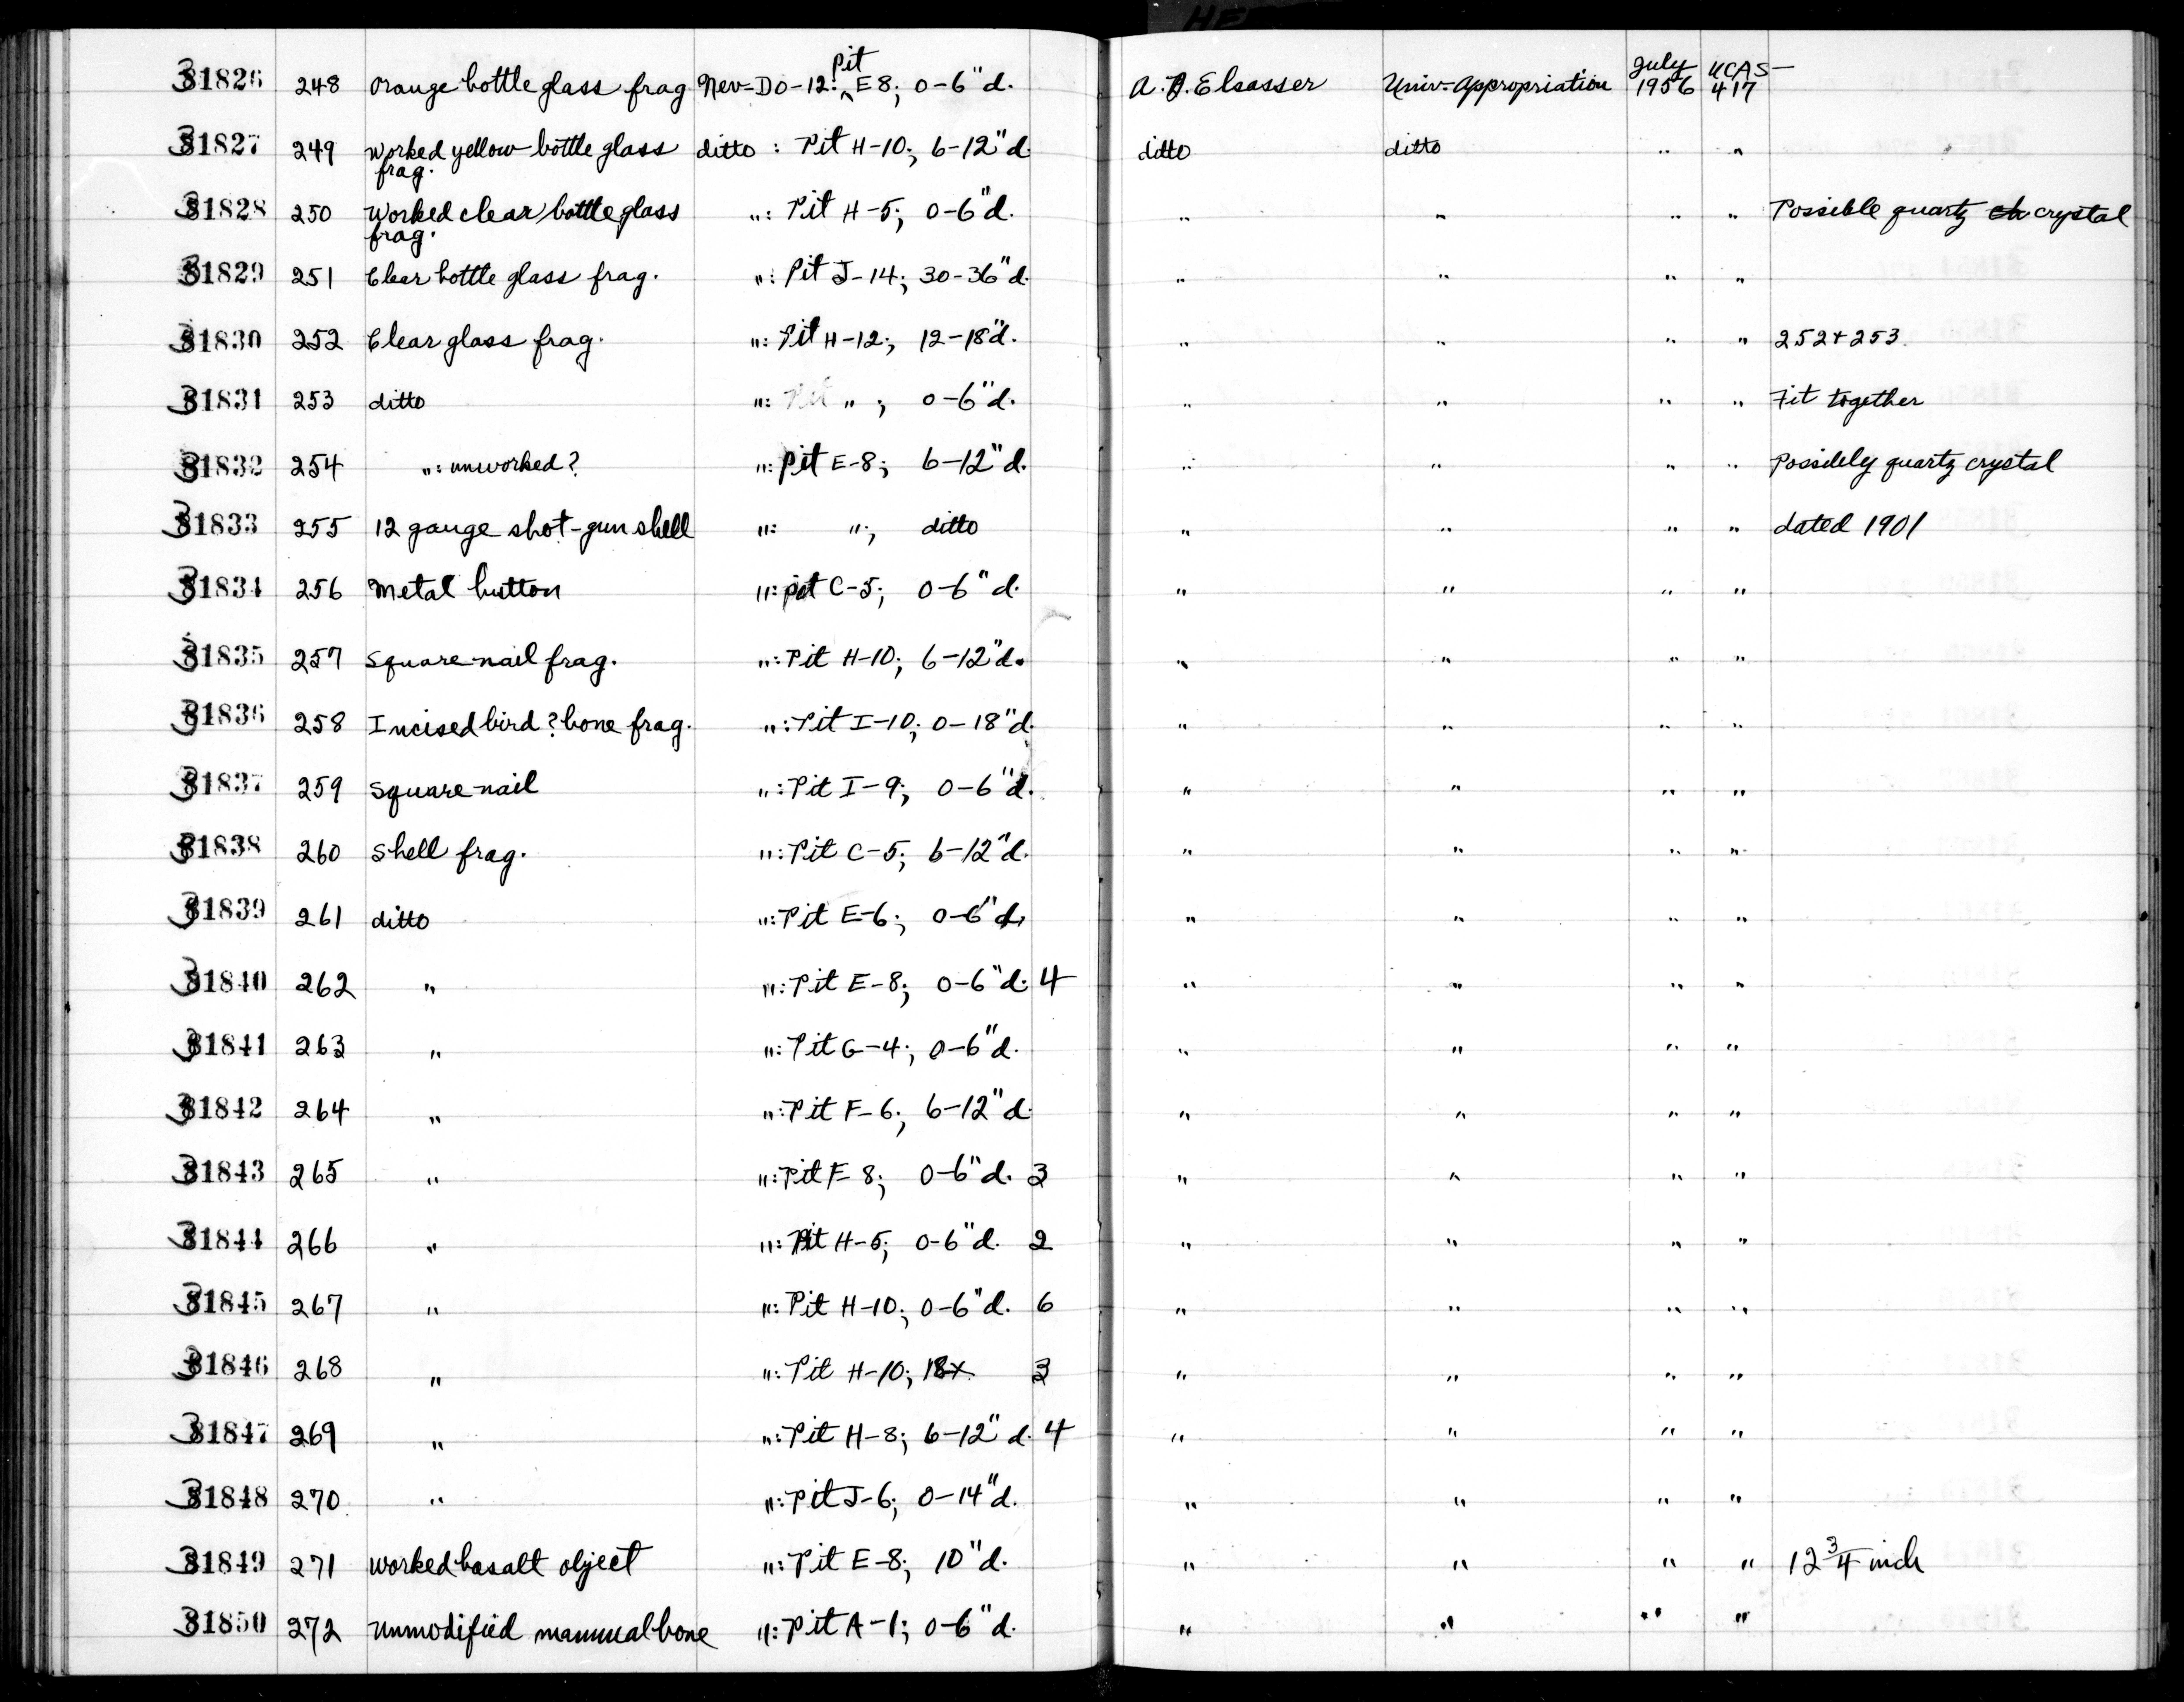 HE
31826 248 Orange bottle glass frag Nev-Do-12: Pit E8; 0-6"d. A. B. Elsasser Univ. Appropriation July 1956 UCAS-417
31827 249 Worked yellow bottle glass frag. ditto : Pit H-10; 6-12"d. ditto ditto " "
31828 250 Worked clear bottle glass frag. ": Pit H-5; 0-6"d. " " " " Possible quartz crystal
31829 251 Clear bottle glass frag. ": Pit J-14; 30-36"d. " " " "
31830 252 Clear glass frag. ": Pit H-12; 12-18"d. " " " " 252+253
31831 253 ditto ": Pit " ; 0-6"d. " " " " Fit together
31832 254 ": unworked? ": Pit E-8; 6-12"d. " " " " Possibly quartz crystal
31833 255 12 gauge shot-gun shell ": "; ditto " " " " dated 1901
31834 256 Metal button ": pit C-5; 0-6"d. " " " "
31835 257 Square nail frag. ": Pit H-10; 6-12"d. " " " "
31836 258 Incised bird? bone frag. ": Pit I-10; 0-18"d. " " " "
31837 259 Square nail ": Pit I-9; 0-6"d. " " " "
31838 260 Shell frag. ": Pit C-5; 6-12"d. " " " "
31839 261 ditto ": Pit E-6; 0-6"d. " " " "
31840 262 " ": Pit E-8; 0-6"d. 4 " " " "
31841 263 " ": Pit G-4; 0-6"d. " " " "
31842 264 " ": Pit F-6; 6-12"d. " " " "
31843 265 " ": Pit F-8; 0-6"d. 3 " " " "
31844 266 " ": Pit H-5; 0-6"d. 2 " " " "
31845 267 " ": Pit H-10; 0-6"d. 6 " " " "
31846 268 " ": Pit H-10; 18+ 3 " " " "
31847 269 " ": Pit H-8; 6-12"d. 4 " " " "
31848 270 " ": Pit J-6; 0-14"d. " " " "
31849 271 Worked basalt object ": Pit E-8; 10"d. " " " " 12 3/4 inch
31850 272 Unmodified mammal bone ": Pit A-1; 0-6"d. " " " "